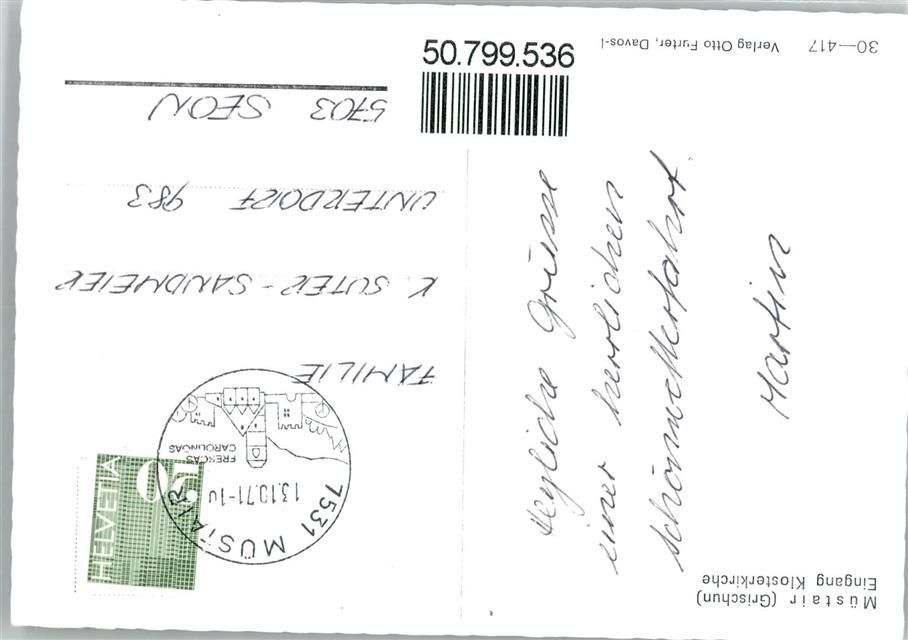 Müstair (Grischun)
Eingang Klosterkirche
Herzliche Grüsse
einer herrlichen
Schönwetterfahrt
Martin
30—417 Verlag Otto Furter, Davos-
HELVETIA
7531 MÜSTAIR
13.10.71-10
FRESCAS
CAROLINGAS
FAMILIE
K. SUTER-SANDMEIER
UNTERDORF 983
5703 SEON
50.799.536